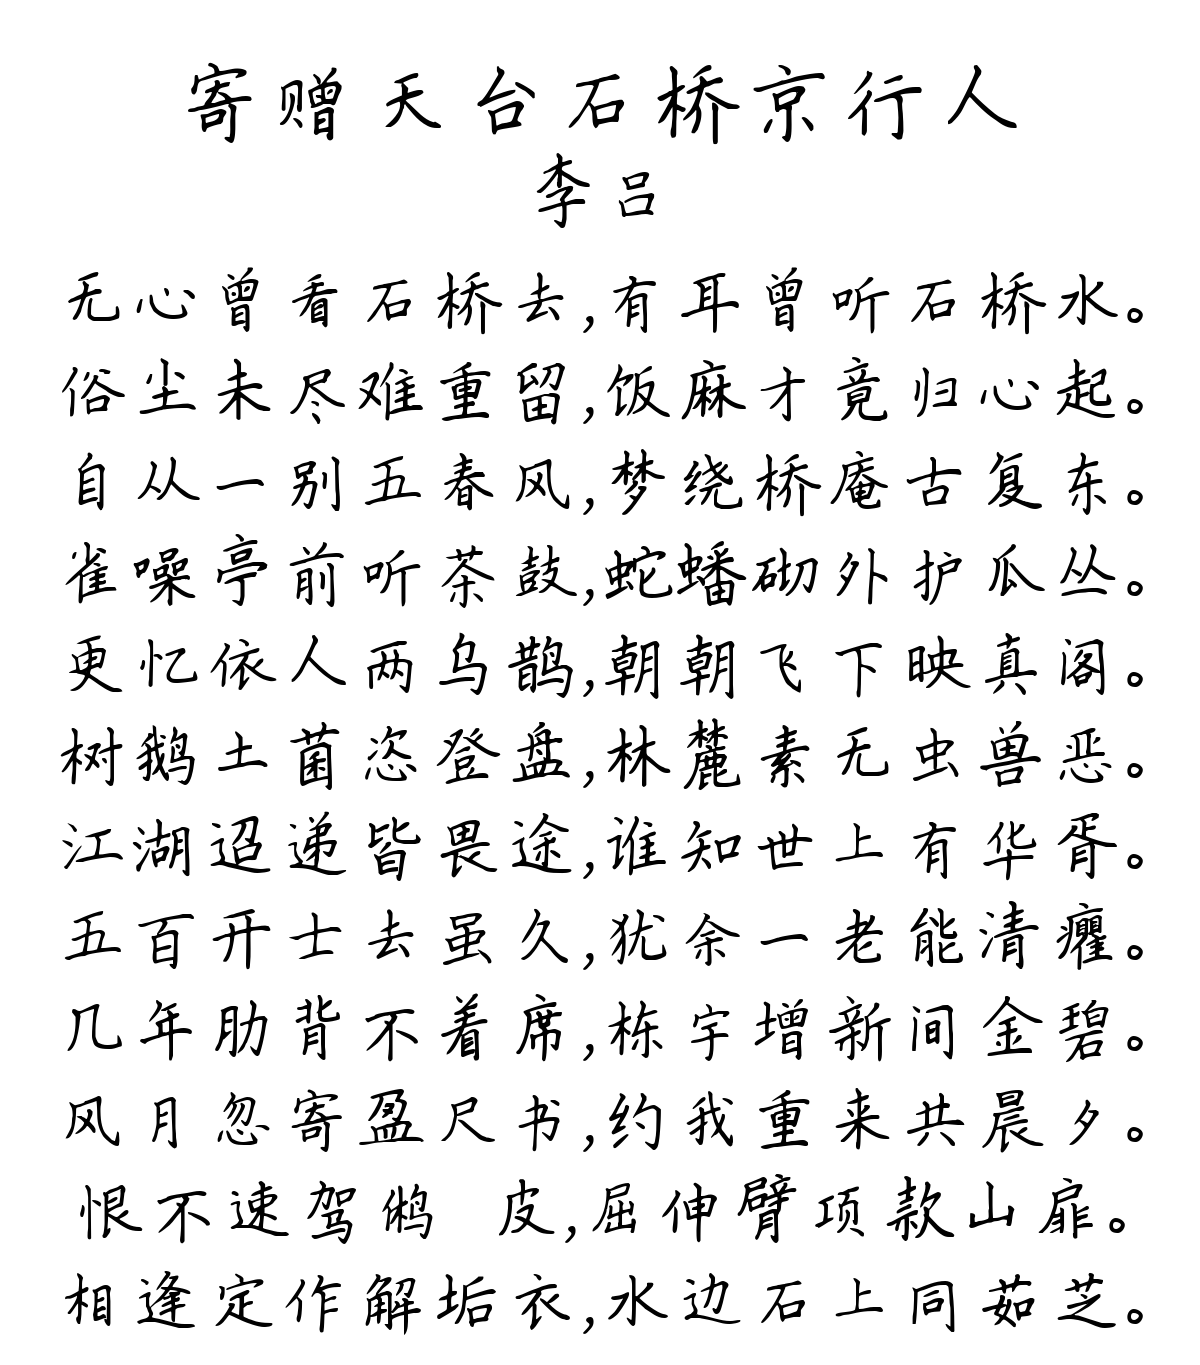 寄赠天台石桥京行人
李吕
无心曾看石桥去,有耳曾听石桥水。
俗尘未尽难重留,饭麻才竟归心起。
自从一别五春风,梦绕桥庵古复东。
雀噪亭前听茶鼓,蛇蟠砌外护瓜丛。
更忆依人两乌鹊,朝朝飞下映真阁。
树鹅土菌恣登盘,林麓素无虫兽恶。
江湖迢递皆畏途,谁知世上有华胥。
五百开士去虽久,犹余一老能清癯。
几年肋背不着席,栋宇增新间金碧。
风月忽寄盈尺书,约我重来共晨夕。
恨不速驾鸺 皮,屈伸臂项款山扉。
相逢定作解垢衣,水边石上同茹芝。